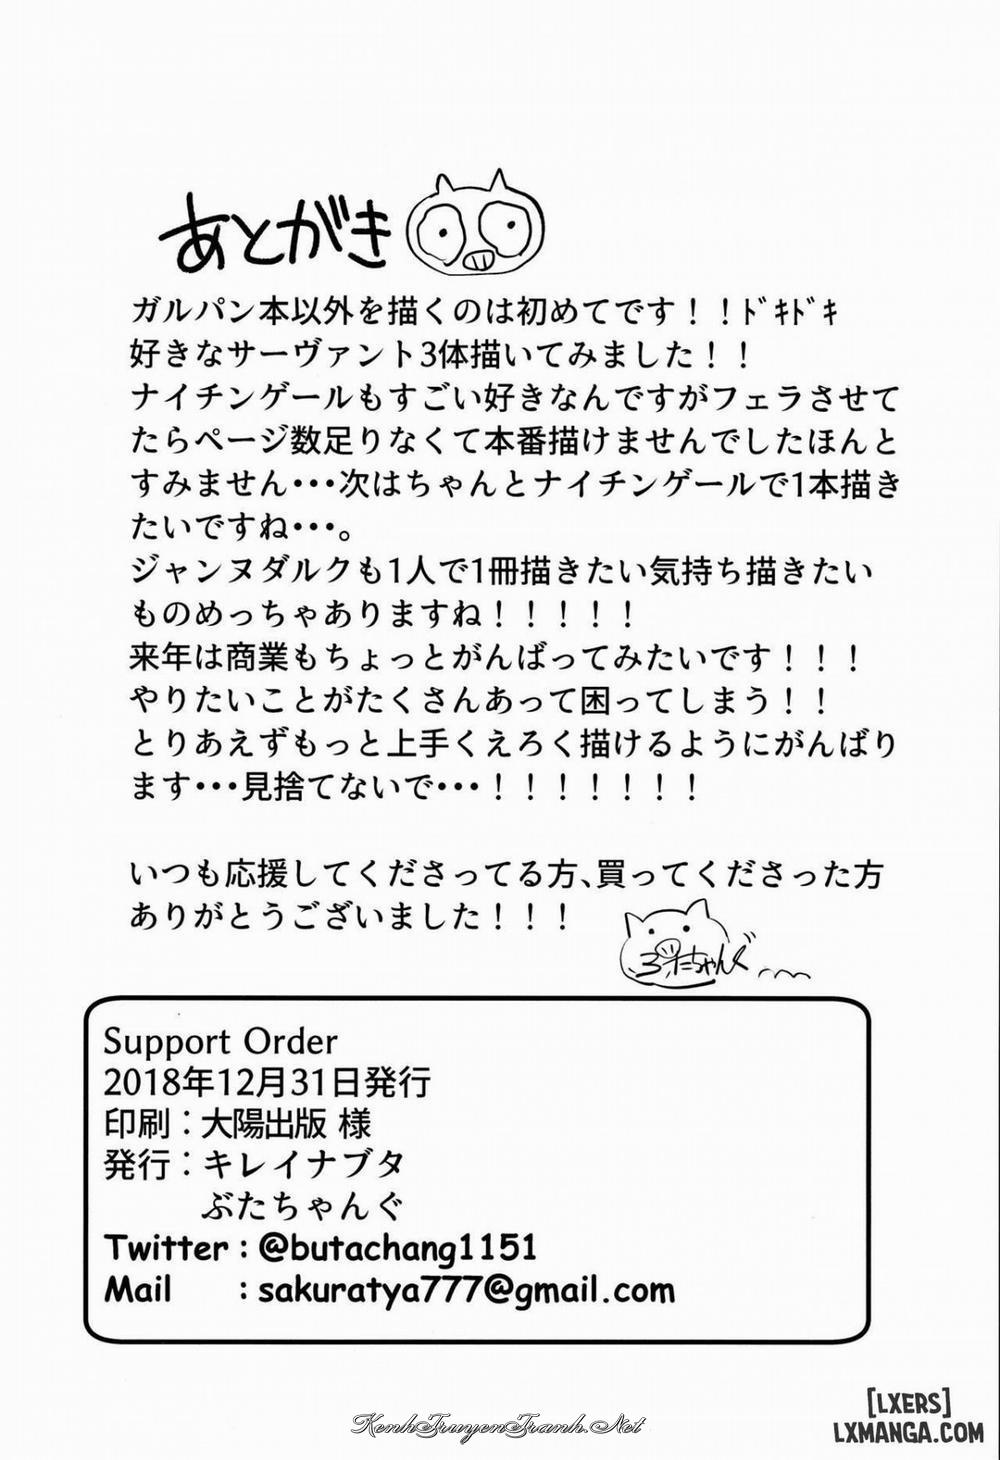 あとがき
ガルパン本以外を描くのは初めてです！！ﾄﾞｷﾄﾞｷ
好きなサーヴァント3体描いてみました！！
ナイチンゲールもすごい好きなんですがフェラさせて
たらページ数足りなくて本番描けませんでしたほんと
すみません・・・次はちゃんとナイチンゲールで1本描き
たいですね・・・。
ジャンヌダルクも1人で1冊描きたい気持ち描きたい
ものめっちゃありますね！！！！！
来年は商業もちょっとがんばってみたいです！！！
やりたいことがたくさんあって困ってしまう！！
とりあえずもっと上手くえろく描けるようにがんばり
ます・・・見捨てないで・・・！！！！！！！
いつも応援してくださってる方、買ってくださった方
ありがとうございました！！！
ぶたちゃんぐ
Support Order
2018年12月31日発行
印刷：大陽出版 様
発行：キレイナブタ
ぶたちゃんぐ
Twitter : @butachang1151
Mail : sakuratya777@gmail.com
[LXERS]
LXMANGA.COM
KenhTruyenTranh.Net